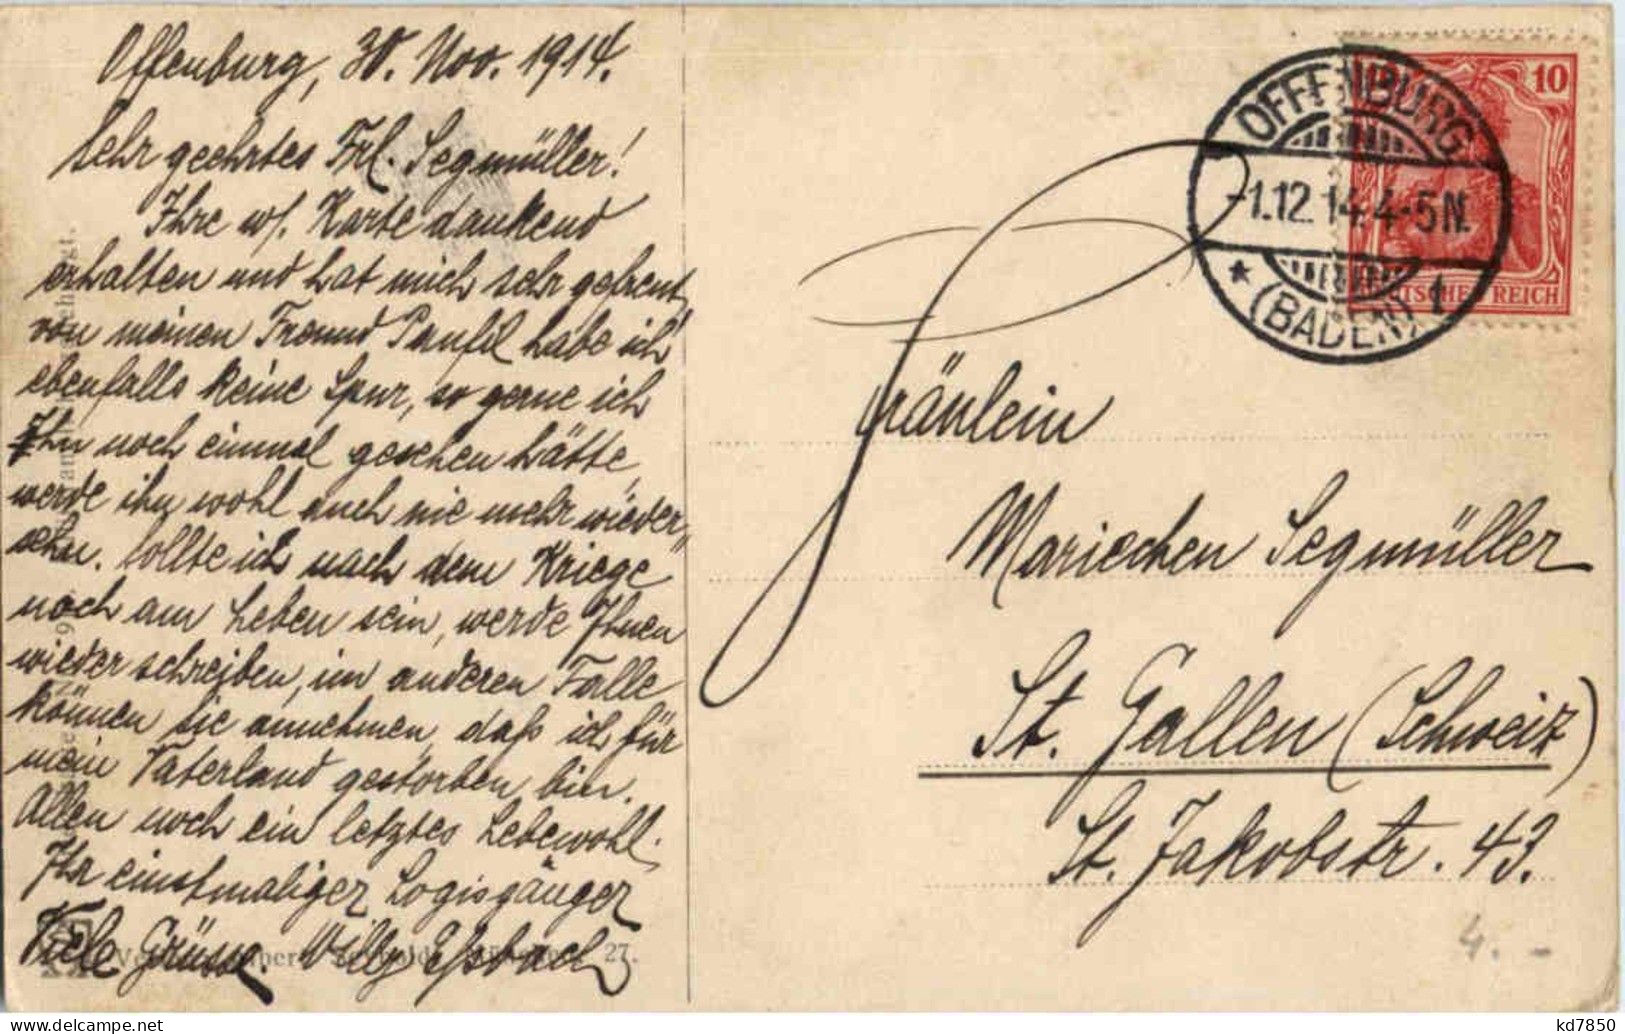 Offenburg, 30. Nov. 1914.
Sehr geehrtes Frl. Segmüller!
Ihre w/. Karte dankend
erhalten und hat mich sehr gefreut,
von meinen Freund Panfil habe ich
ebenfalls keine Spur, so gerne ich
Ihn noch einmal gesehen hätte,
werde ihn wohl auch nie mehr wieder„
sehn. Sollte ich nach dem Kriege
noch am Leben sein, werde Ihnen
wieder schreiben, im anderen Falle
können sie annehmen, daß ich für
mein Vaterland gestorben bin.
Allen noch ein letztes Lebewohl.
Ihr einstmaliger Logisgänger
Viele Grüsse. Willy Eßbach
27.
OFFENBURG
-1.12.14.4-5N.
* (BADEN) 1
10
DEUTSCHES REICH
Fräulein
Mariechen Segmüller
St. Gallen (Schweiz)
St. Jakobstr. 43.
4. -
kd7850